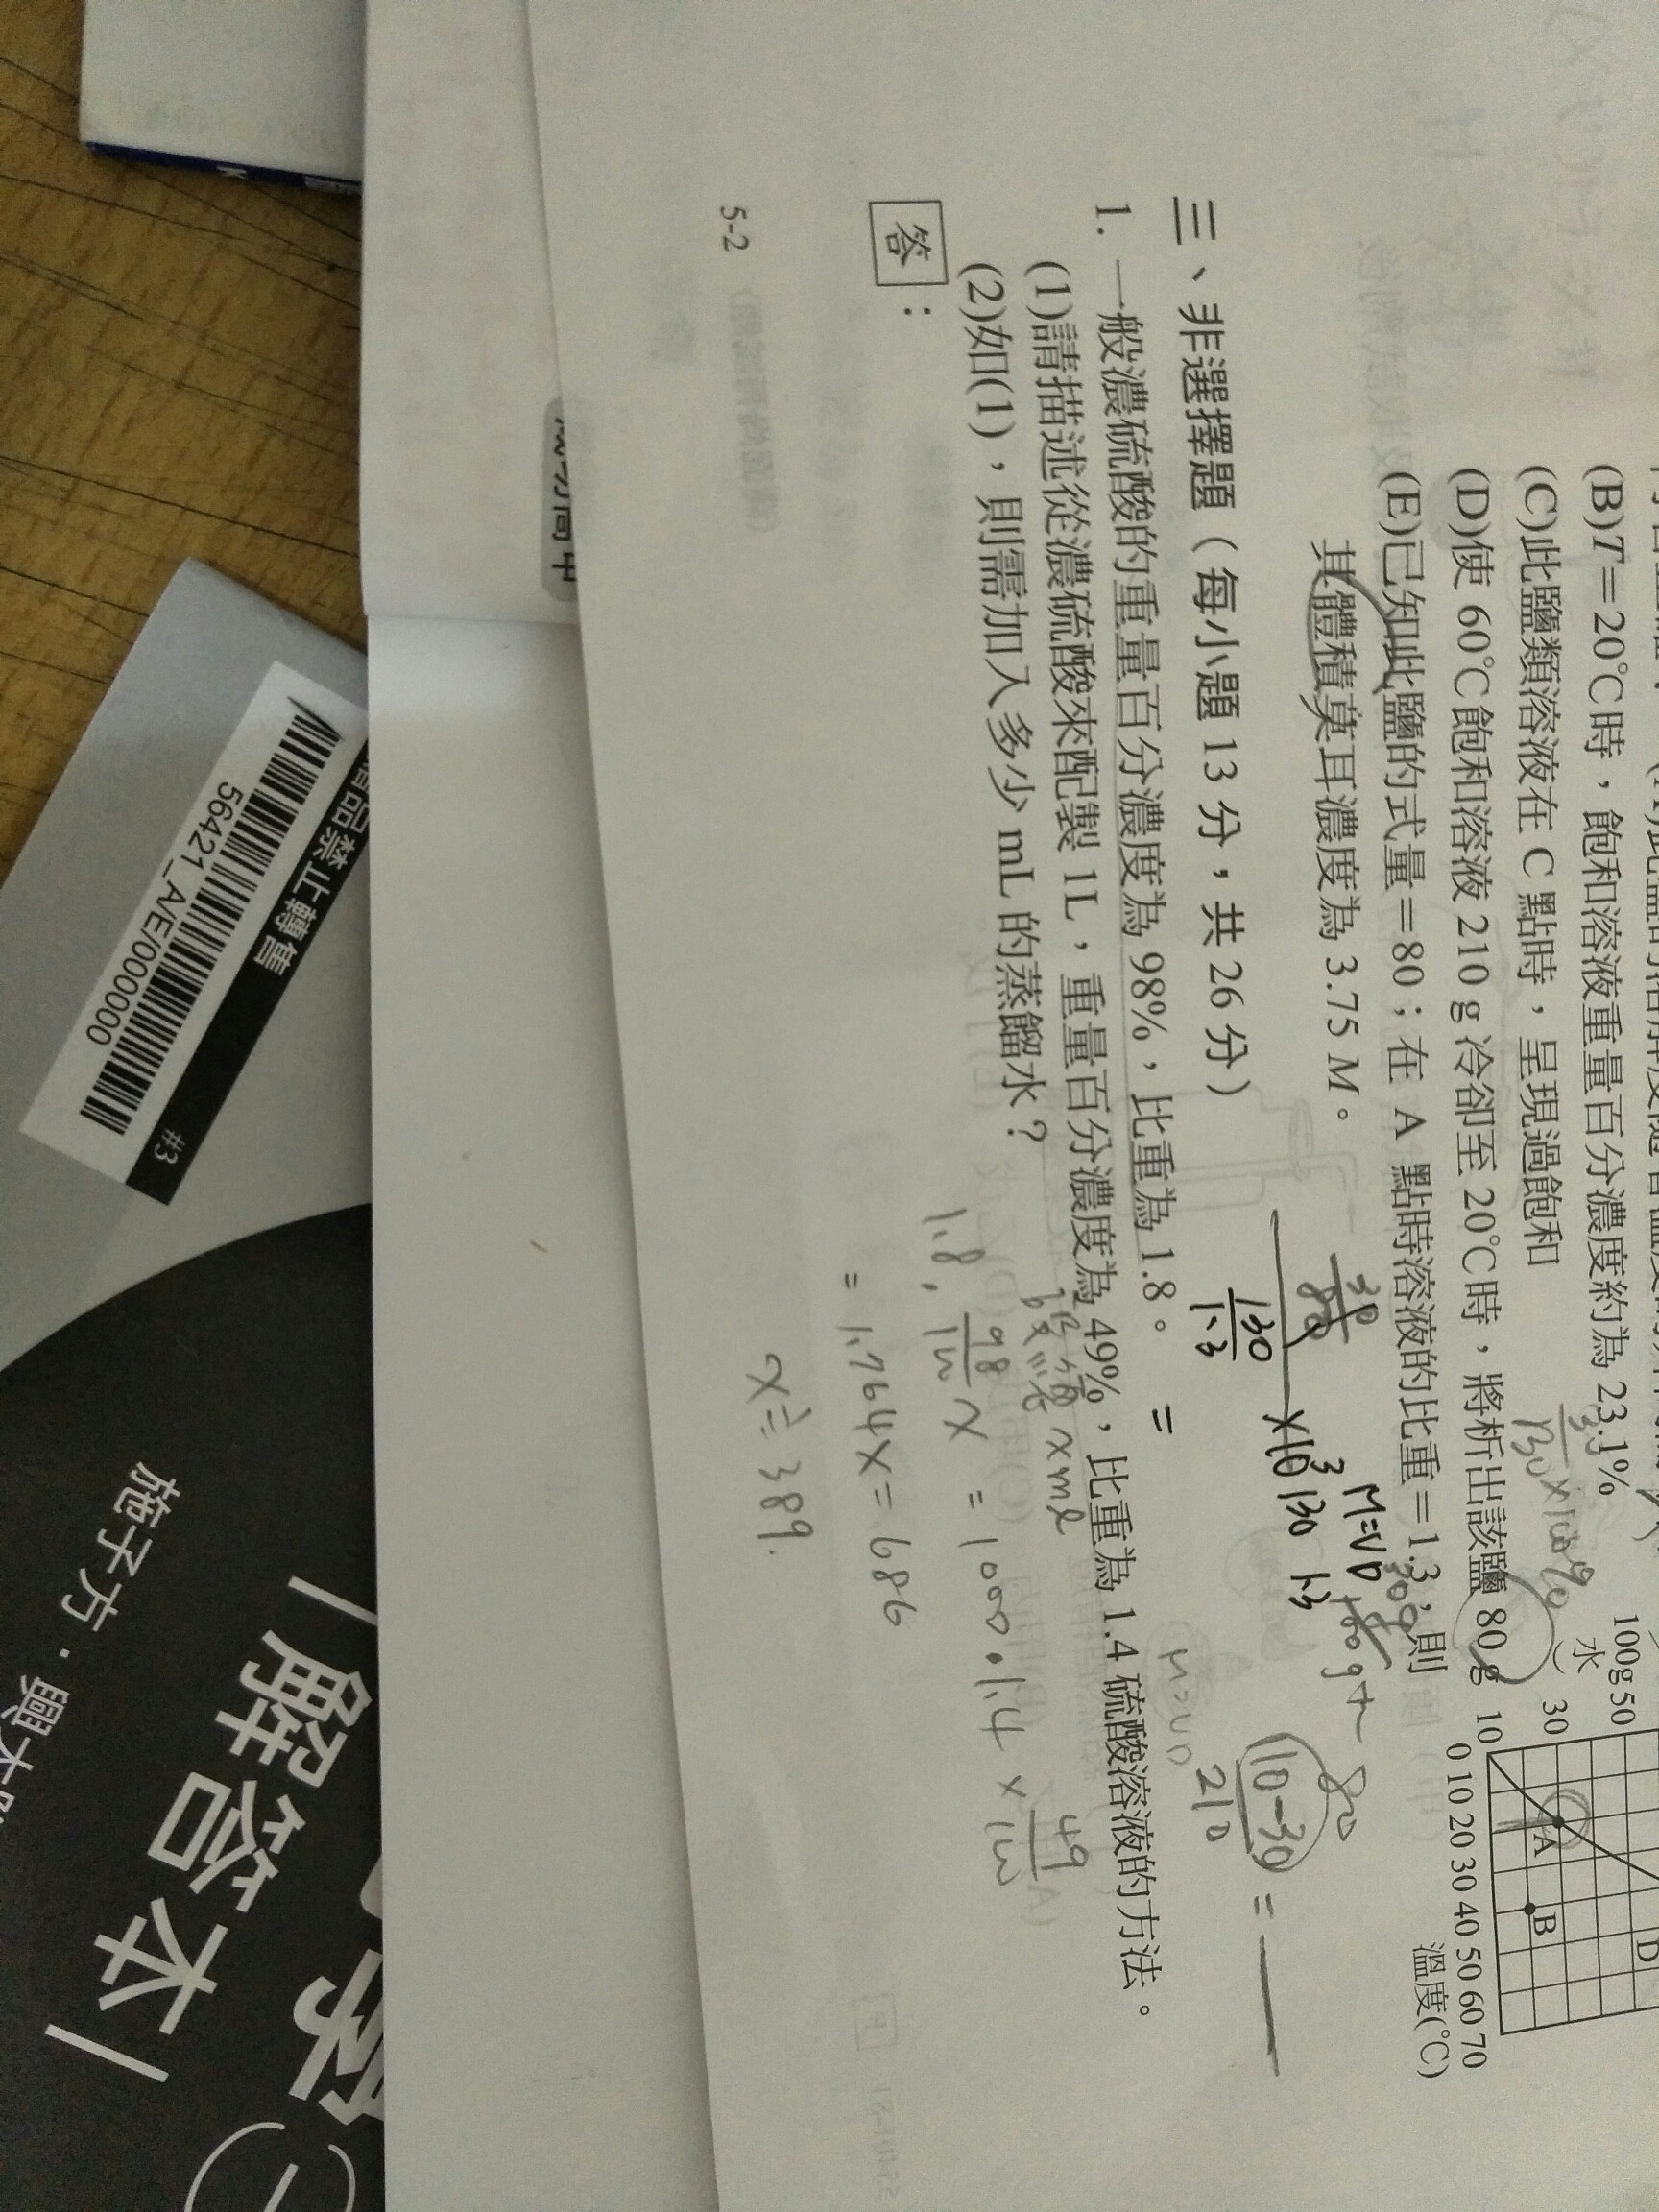 (B)T=20℃時，飽和溶液重量百分濃度約為 23.1%
(C)此鹽類溶液在 C 點時，呈現過飽和
(D)使 60℃飽和溶液 210 g 冷卻至 20℃時，將析出該鹽 80 g
(E)已知此鹽的式量=80；在 A 點時溶液的比重=1.3，則
其體積莫耳濃度為 3.75 M。
100g
水
50
30
10
0 10 20 30 40 50 60 70
溫度(℃)
A
B
D
30
130
×100%
30
80
130
1.3
×10³
130 1.3
M=VD
30g
100g水
80
10-30
210
=
三、非選擇題（每小題 13 分，共 26 分）
1. 一般濃硫酸的重量百分濃度為 98%，比重為 1.8。
=
(1)請描述從濃硫酸來配製 1L，重量百分濃度為 49%，比重為 1.4 硫酸溶液的方法。
(2)如(1)，則需加入多少 mL 的蒸餾水？
M=VD
x ml
1.8 · 98/100 x = 1000 · 1.4 × 49/100
= 1.764x = 686
x ≒ 389.
答：
5-2
禁止轉售
#3
56421_A/E/000000
解答本
施子方．興大